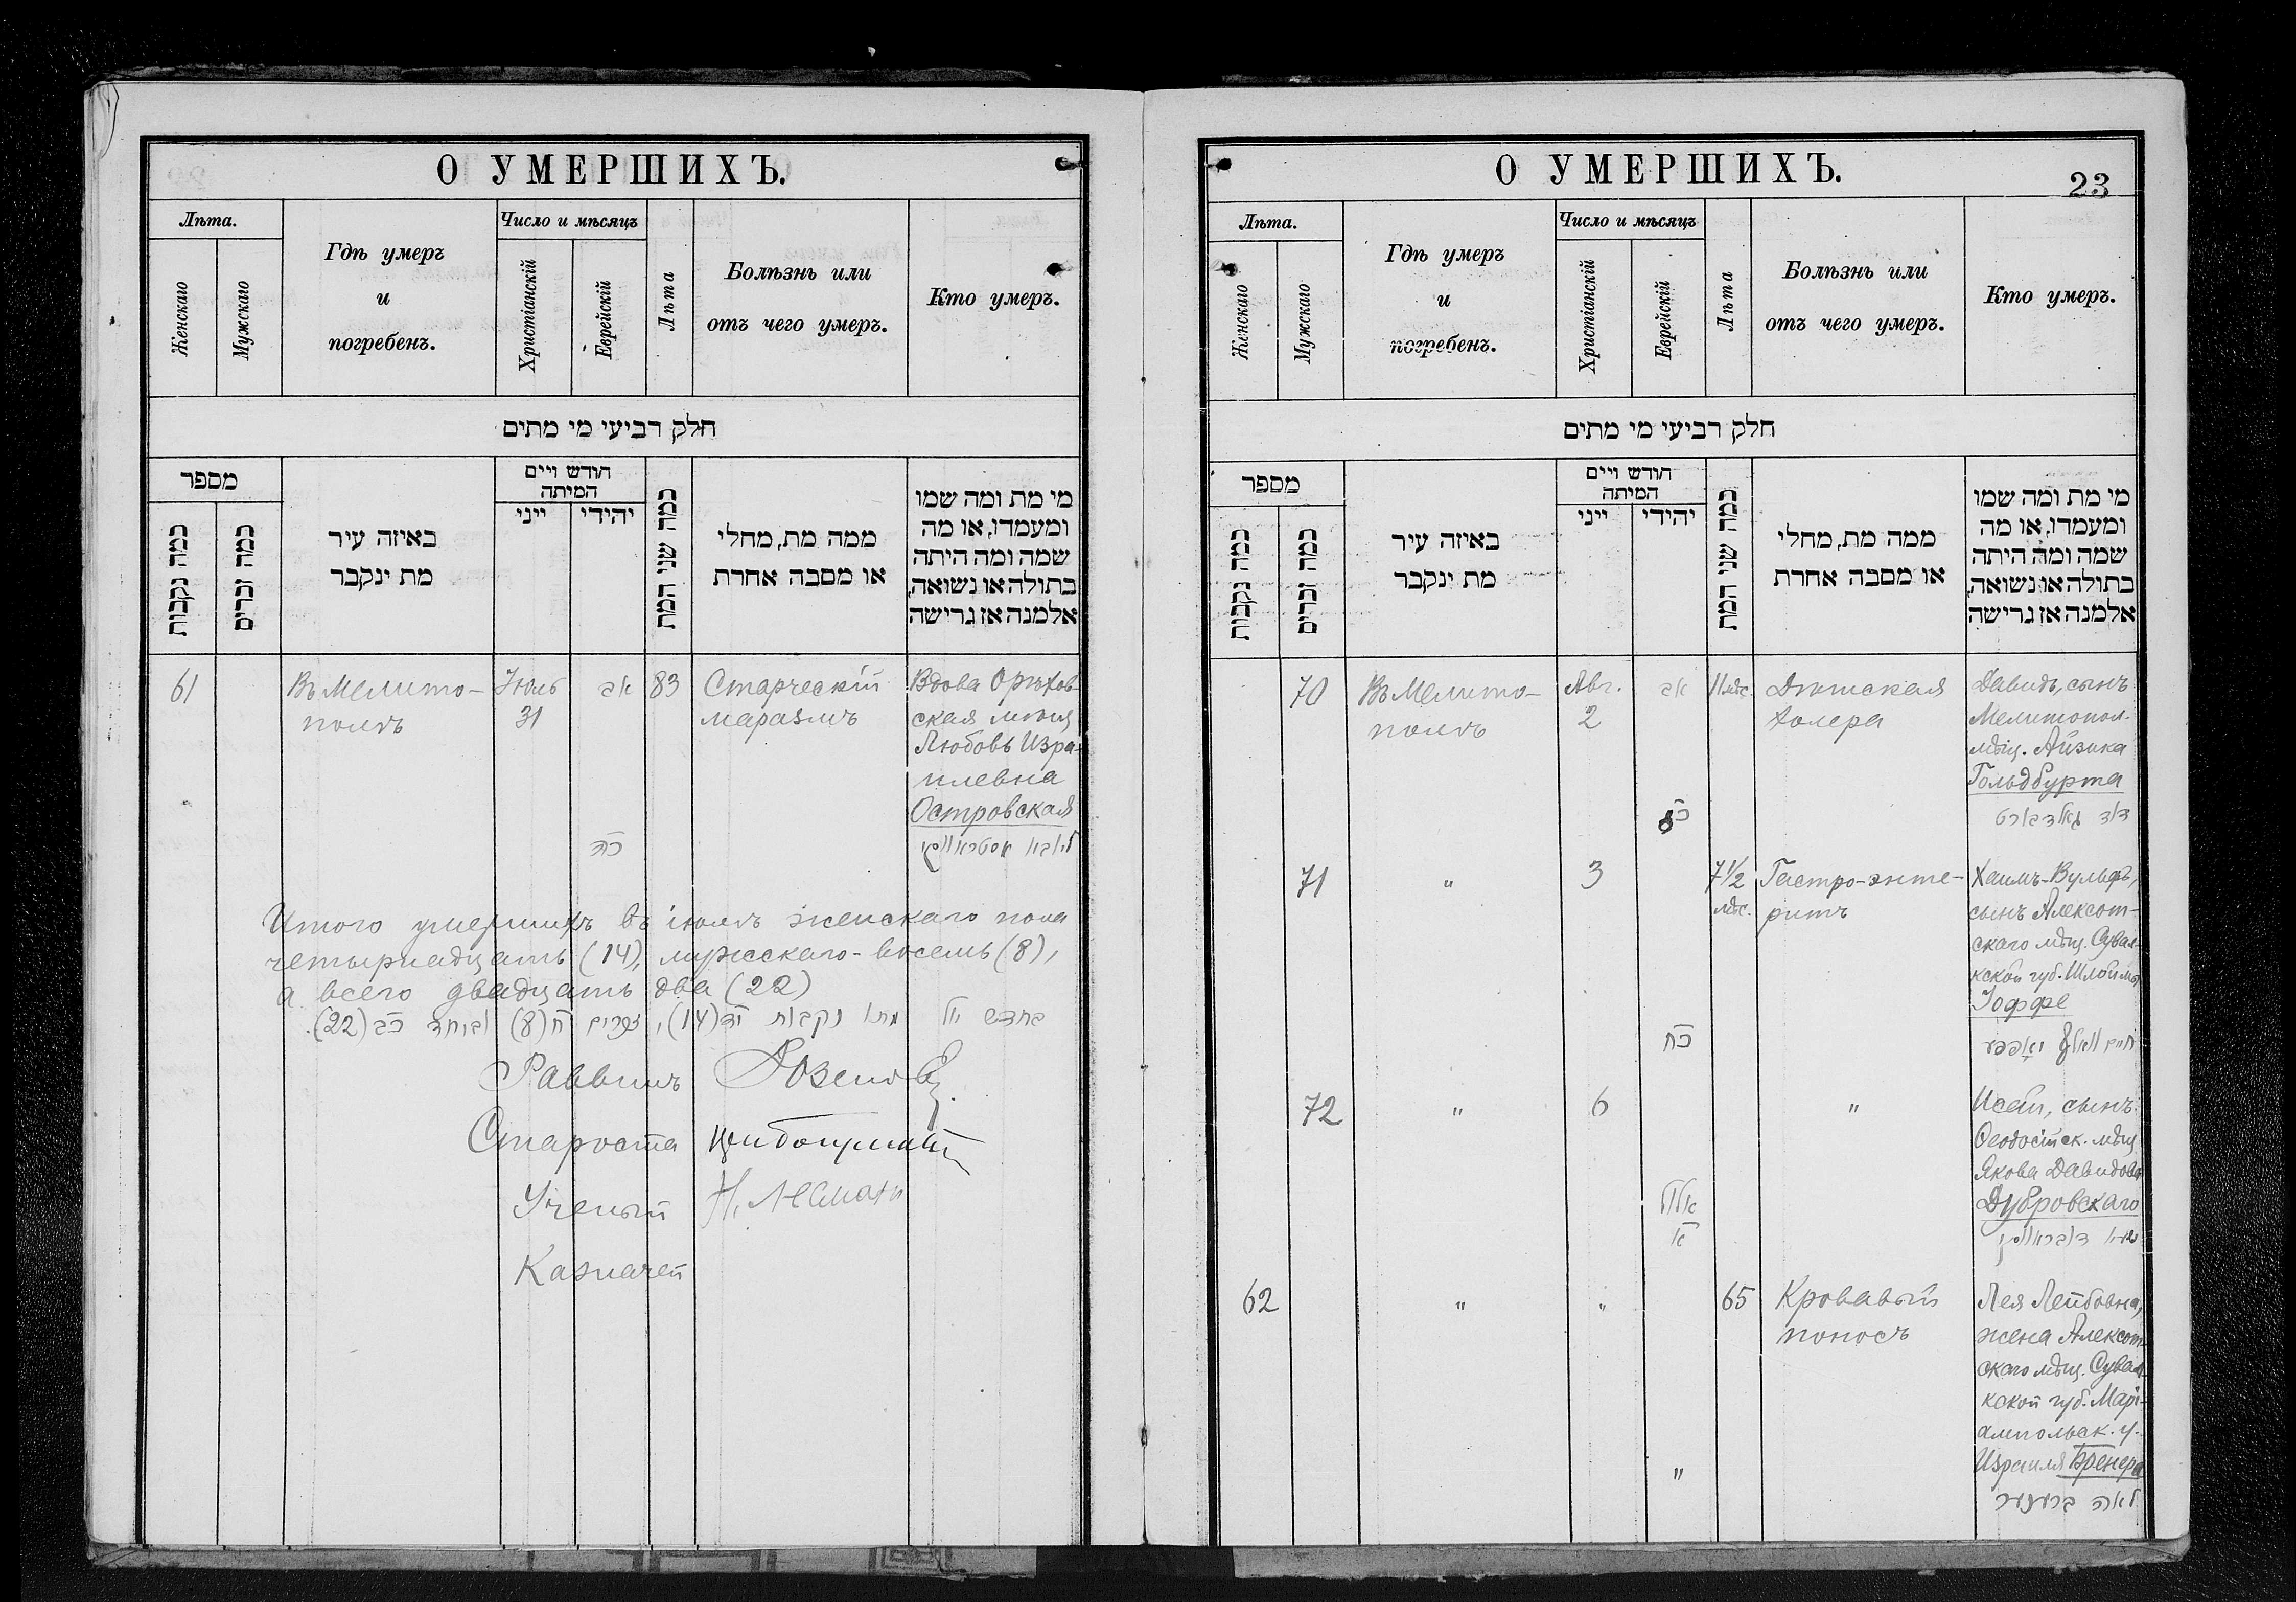 О УМЕРШИХЪ.
Лѣта.
Женскаго
Мужскаго
Гдѣ умеръ
и
погребенъ.
Число и мѣсяцъ
Христіанскій
Еврейскій
Лѣта
Болѣзнь или
отъ чего умеръ.
Кто умеръ.
חלק רביעי מי מתים
מספר
כמה נקבות
כמה זכרים
באיזה עיר
מת ינקבר
חודש ויים
המיתה
ייני
יהידי
כמה שני המת
ממה מת, מחלי
או מסבה אחרת
מי מת ומה שמו
ומעמדו, או מה
שמה ומה היתה
בתולה או נשואה,
אלמנה אז גרישה
61
Въ Мелито-
полѣ
Іюль
31
אב
כה
83
Старческій
маразмъ
Вдова Орѣхов-
ская мѣщ
Любовь Изра-
илевна
Островская
ליבא אסטראווסקי
Итого умершихъ въ іюлѣ женскаго пола
четырнадцать (14), мужскаго - восемь (8),
а всего двадцать два (22)
בחדש יולי מתו נקבות יד (14), זכרים ח (8) וביחד כב (22).
Раввинъ
Староста
Ученый
Казначей
О УМЕРШИХЪ.
23
Лѣта.
Женскаго
Мужскаго
Гдѣ умеръ
и
погребенъ.
Число и мѣсяцъ
Христіанскій
Еврейскій
Лѣта
Болѣзнь или
отъ чего умеръ.
Кто умеръ.
חלק רביעי מי מתים
מספר
כמה נקבות
כמה זכרים
באיזה עיר
מת ינקבר
חודש ויים
המיתה
ייני
יהידי
כמה שני המת
ממה מת, מחלי
או מסבה אחרת
מי מת ומה שמו
ומעמדו, או מה
שמה ומה היתה
בתולה או נשואה,
אלמנה אז גרישה
70
Въ Мелито-
полѣ
Авг.
2
אב
11 мѣс.
Дѣтская
холера
Давидъ, сынъ
Мелитопол.
мѣщ. Айзика
Гольдбурта
דוד גאלדבורט
71
"
3
כח
7 1/2
мѣс.
Гастро-энте-
ритъ
Хаимъ-Вульфъ,
сынъ Алексот-
скаго мѣщ. Сувал-
кской губ. Шлоимы
Іоффе
חיים וואלף יאפפע
72
"
6
אלול
א
"
Исай, сынъ
Ѳеодосійск. мѣщ
Якова Давидова
Дубровскаго
ישעי' דובראווסקי
62
"
"
"
65
Кровавый
поносъ
Лея Лейбовна,
жена Алексот-
скаго мѣщ. Сувал-
кской губ. Марі-
ампольск. у.
Израиля Бренера
לאה ברענער